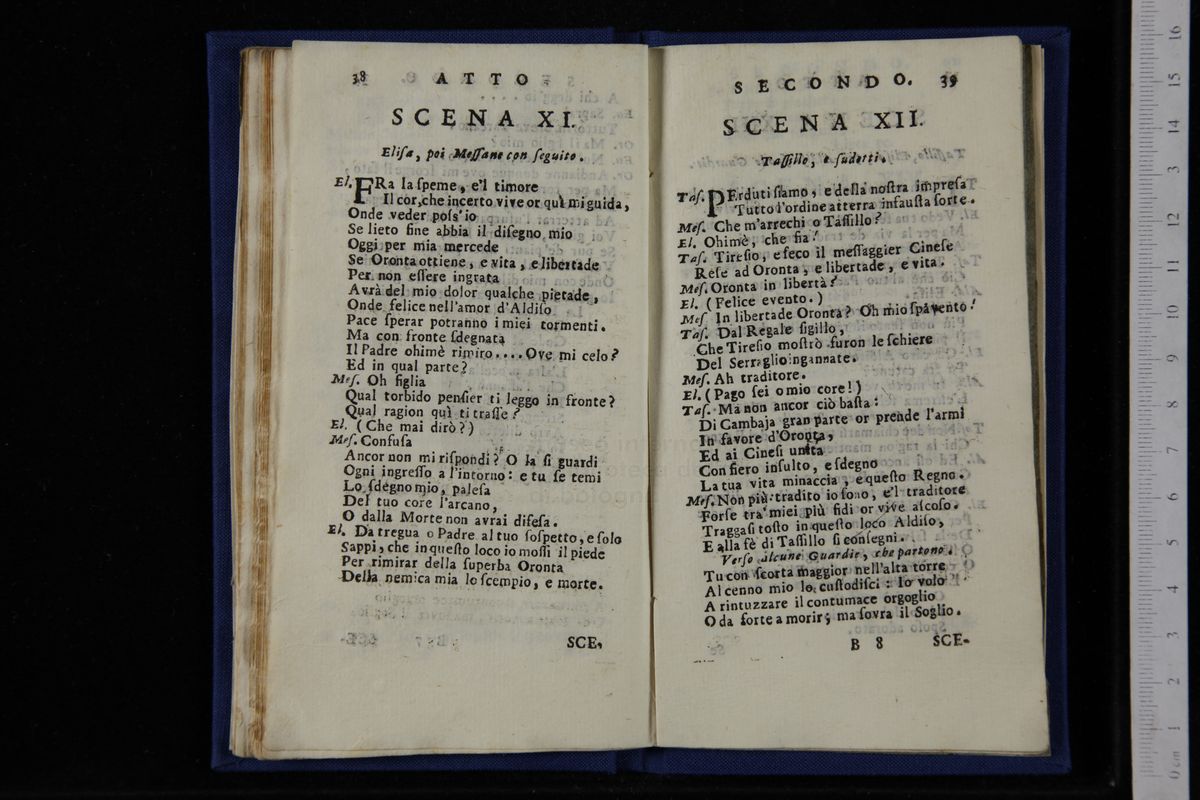 38 ATTO
SCENA XI.
Elisa, poi Messane con seguito.
El. FRa la speme, e'l timore
Il cor, che incerto vive or quì mi guida,
Onde veder poss'io
Se lieto fine abbia il disegno mio
Oggi per mia mercede
Se Oronta ottiene, e vita, e libertade
Per non essere ingrata
Avrà del mio dolor qualche pietade,
Onde felice nell'amor d'Aldiso
Pace sperar potranno i miei tormenti.
Ma con fronte sdegnata
Il Padre ohimè rimiro.... Ove mi celo?
Ed in qual parte?
Mes. Oh figlia
Qual torbido pensier ti leggo in fronte?
Qual ragion quì ti trasse?
El. (Che mai dirò?)
Mes. Confusa
Ancor non mi rispondi? O la si guardi
Ogni ingresso a l'intorno: e tu se temi
Lo sdegno mio, palesa
Del tuo core l'arcano,
O dalla Morte non avrai difesa.
El. Da tregua o Padre al tuo sospetto, e solo
Sappi, che in questo loco io mossi il piede
Per rimirar della superba Oronta
Della nemica mia lo scempio, e morte.
SCE-
SECONDO. 39
SCENA XII.
Tassillo, e sudetti.
Tas. PErduti siamo, e della nostra impresa
Tutto l'ordine atterra infausta sorte.
Mes. Che m'arrechi o Tassillo?
El. Ohimè, che fia!
Tas. Tiresio, e seco il messaggier Cinese
Rese ad Oronta, e libertade, e vita.
Mes. Oronta in libertà?
El. (Felice evento.)
Mes. In libertade Oronta? Oh mio spavento!
Tas. Dal Regale sigillo,
Che Tiresio mostrò furon le schiere
Del Serraglio ingannate.
Mes. Ah traditore.
El. (Pago sei o mio core!)
Tas. Ma non ancor ciò basta:
Di Cambaja gran parte or prende l'armi
In favore d'Oronta,
Ed ai Cinesi unita
Con fiero insulto, e sdegno
La tua vita minaccia, e questo Regno.
Mes. Non più: tradito io sono, e'l traditore
Forse tra' miei più fidi or vive ascoso.
Traggasi tosto in questo loco Aldiso,
E alla fè di Tassillo si consegni.
Verso alcune Guardie, che partono.
Tu con scorta maggior nell'alta torre
Al cenno mio lo custodisci: Io volo
A rintuzzare il contumace orgoglio
O da forte a morir; ma sovra il Soglio.
B 8 SCE-